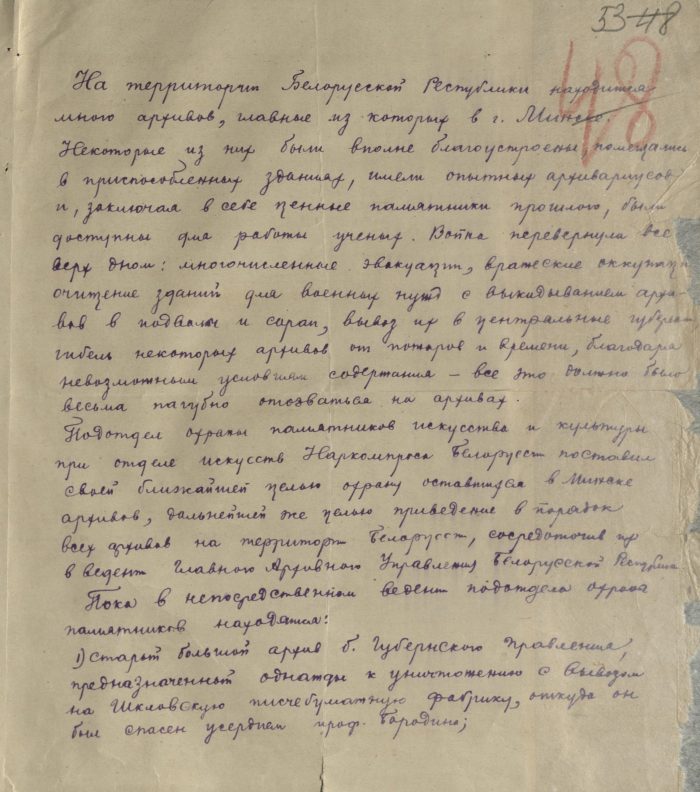 53-48
48
На территории Белорусской Республики находится
много архивов, главные из которых в г. Минске.
Некоторые из них были вполне благоустроены помещались
в приспособленных зданиях, имели опытных архивариусов
и, заключая в себе ценные памятники прошлого, были
доступны для работы ученых. Война перевернула все
верх дном: многочисленные эвакуации, вражеские оккупации
очищение зданий для военных нужд с выкидыванием архи-
вов в подвалы и сараи, вывоз их в центральные губернии
гибель некоторых архивов от пожаров и времени, благодаря
невозможным условиям содержания – все это должно было
весьма пагубно отозваться на архивах.
Подотдел охраны памятников искусства и культуры
при отделе искусств Наркомпроса Белоруссии поставил
своей ближайшей целью охрану оставшихся в Минске
архивов, дальнейшей же целью приведение в порядок
всех архивов на территории Белоруссии, сосредоточив их
в ведении Главного Архивного Управления Белорусской Республики
Пока в непосредственном ведении подотдела охраны
памятников находятся:
1) Старый большой архив б. Губернского Правления,
предназначенный однажды к уничтожению с вывозом
на Шкловскую писчебумажную фабрику, откуда он
был спасен усердием проф. Бородино;